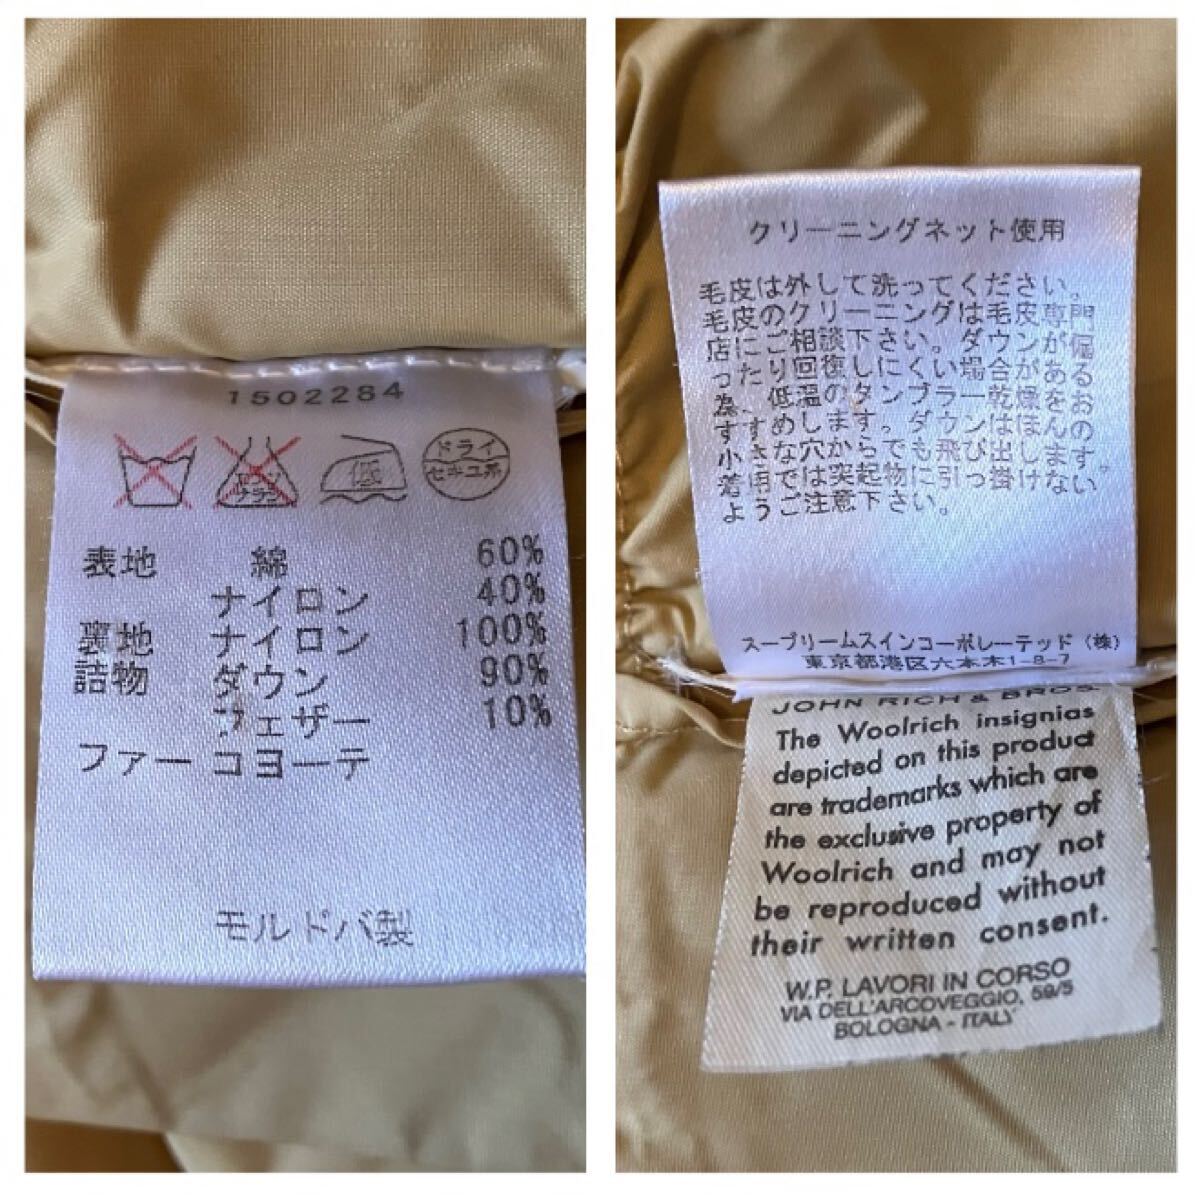 1502284
エンソ
サラシ
低
ドライ
セキユ系
表地 綿 60%
ナイロン 40%
裏地 ナイロン 100%
詰物 ダウン 90%
フェザー 10%
ファー コヨーテ
モルドバ製
クリーニングネット使用
毛皮は外して洗ってください。
毛皮のクリーニングは毛皮専門
店にご相談下さい。ダウンが偏
ったり回復しにくい場合がある
為、低温のタンブラー乾燥をお
すすめします。ダウンはほんの
小さな穴からでも飛び出します。
着用では突起物に引っ掛けない
ようご注意下さい。
スープリームスインコーポレーテッド(株)
東京都港区六本木1-8-7
JOHN RICH & BROS.
The Woolrich insignias
depicted on this product
are trademarks which are
the exclusive property of
Woolrich and may not
be reproduced without
their written consent.
W.P. LAVORI IN CORSO
VIA DELL'ARCOVEGGIO, 59/5
BOLOGNA - ITALY